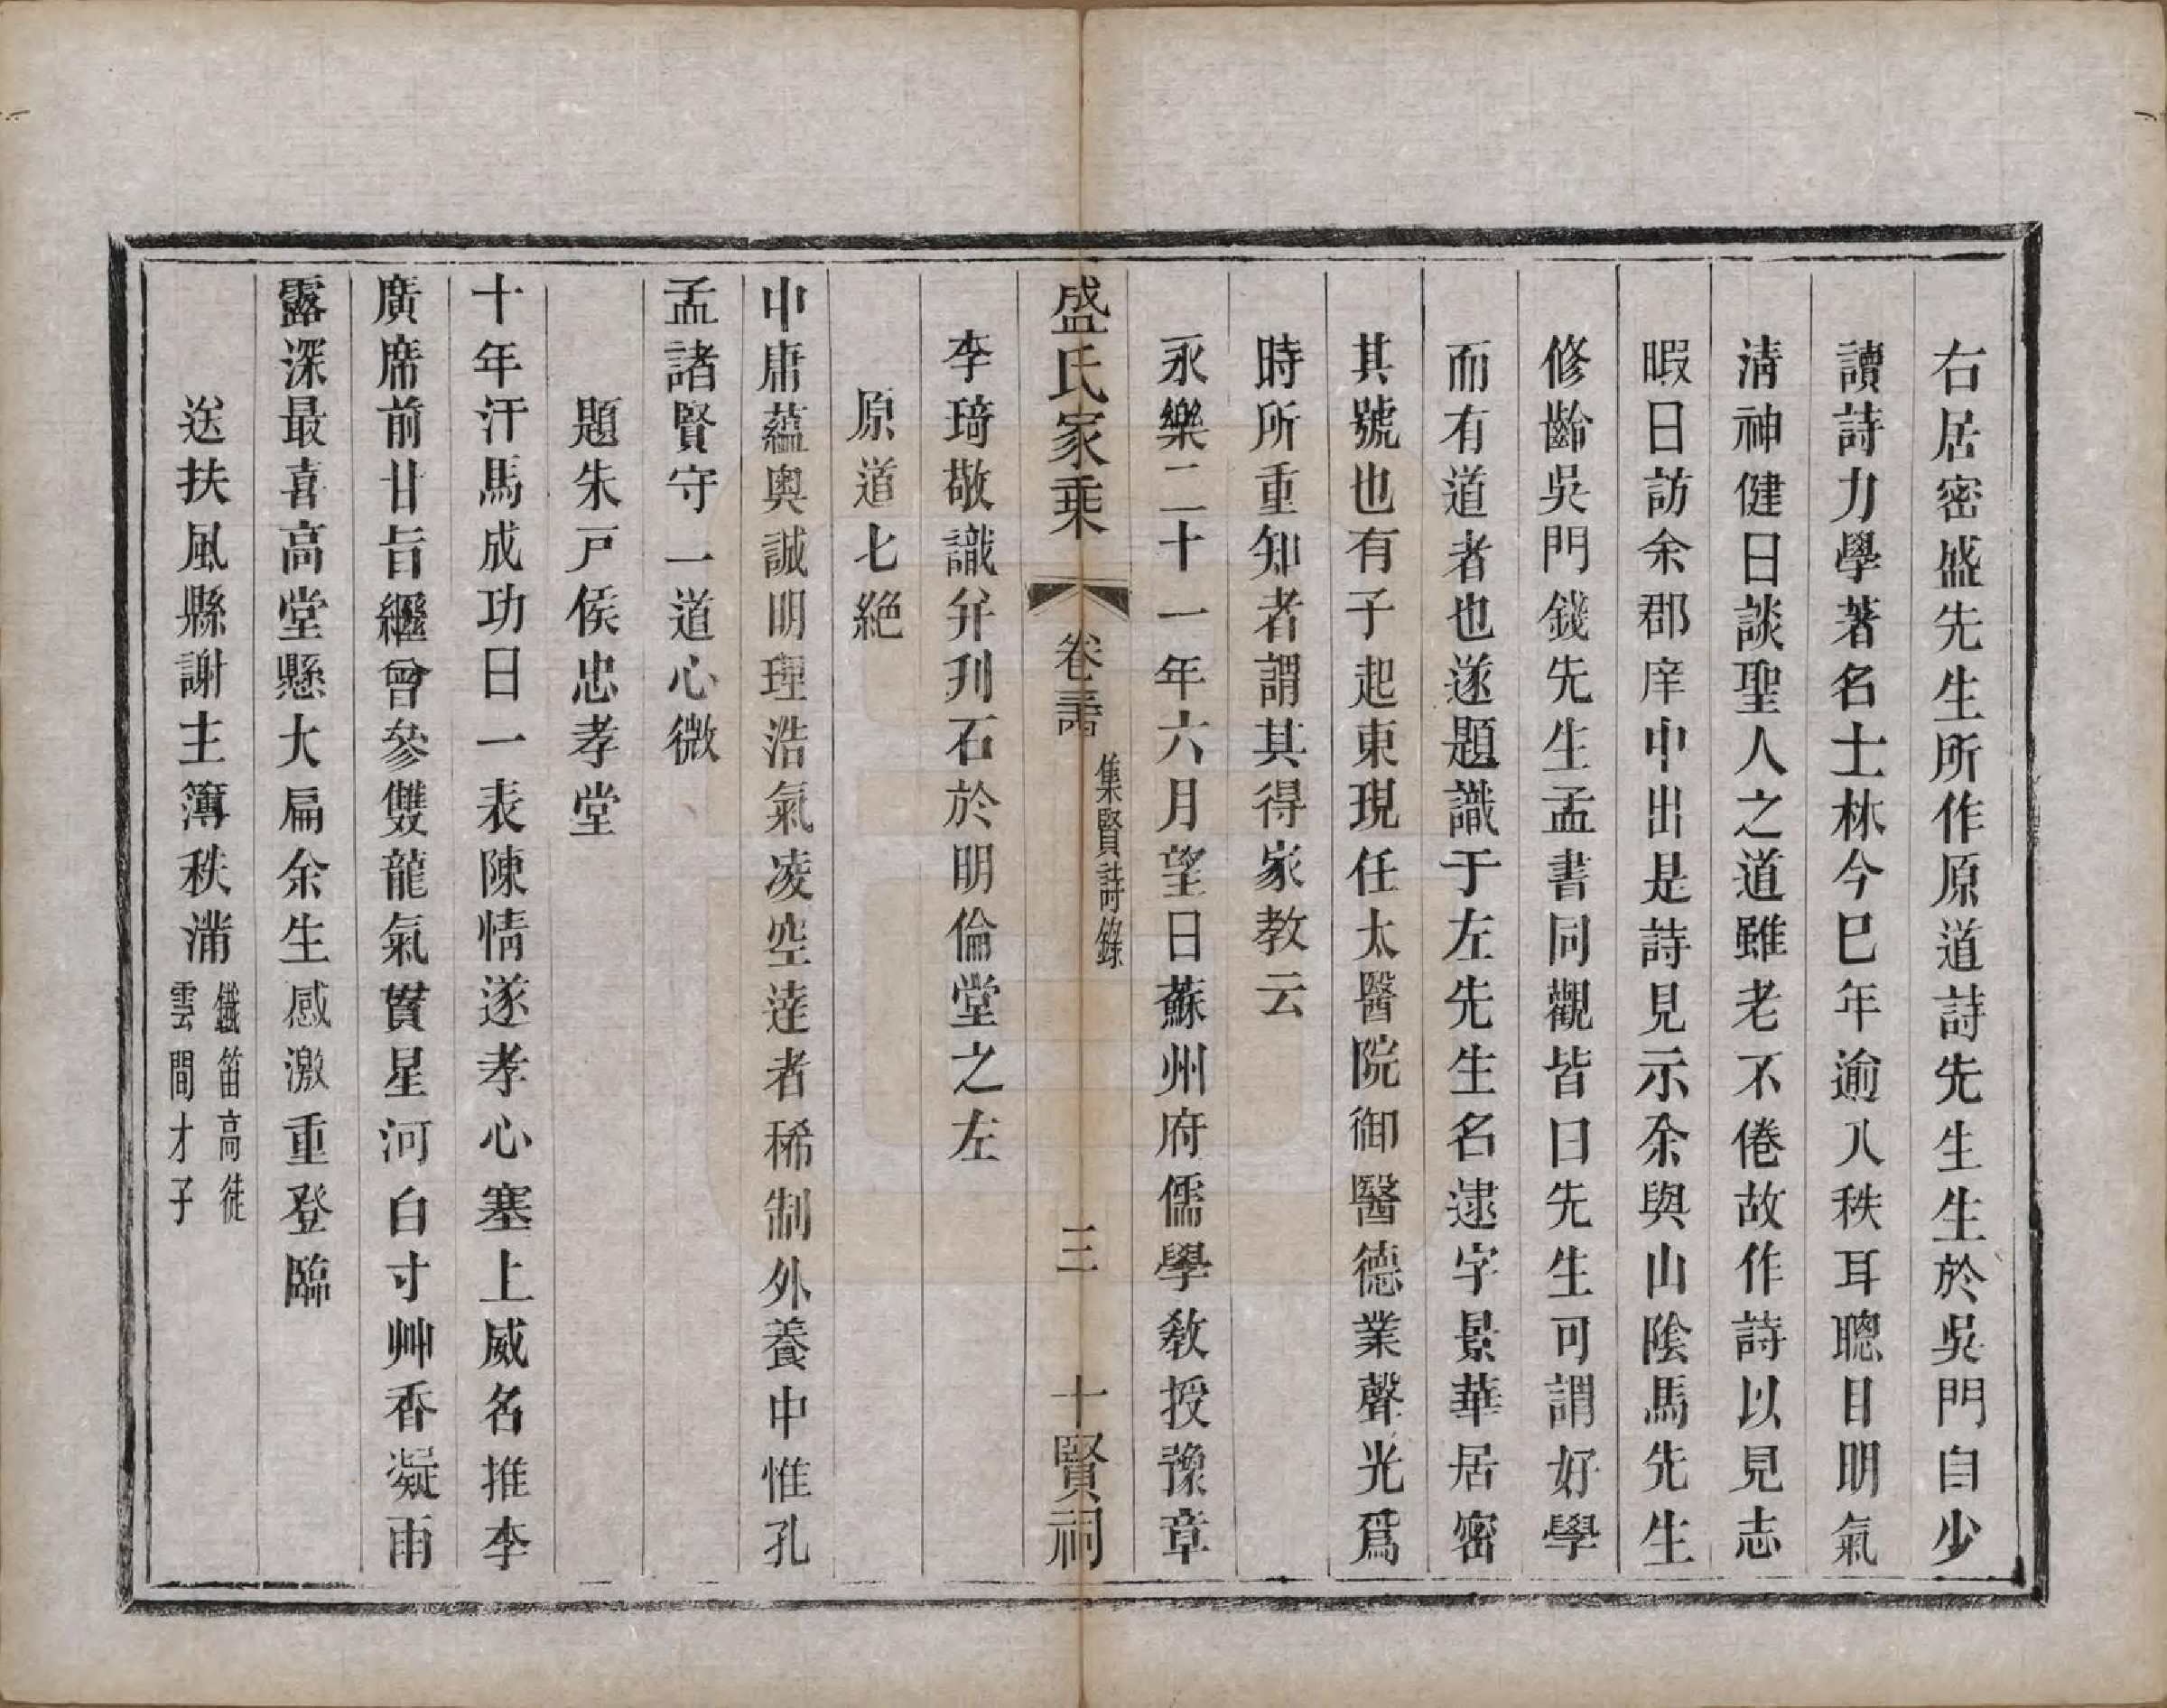 右居密盛先生所作原道詩先生生於吳門自少
讀詩力學著名士林今巳年逾八秩耳聰目明氣
淸神健日談聖人之道雖老不倦故作詩以見志
暇日訪余郡庠中出是詩見示余與山陰馬先生
修齡吳門錢先生孟書同觀皆曰先生可謂好學
而有道者也遂題識于左先生名逮字景華居密
其號也有子起東現任太醫院御醫德業聲光爲
時所重知者謂其得家教云
永樂二十一年六月望日蘇州府儒學敎授豫章
李琦敬識弁刋石於明倫堂之左
盛氏家乘
卷
集賢詩錄
三
十賢祠
原道七絶
中庸蘊奧誠明理浩氣凌空達者稀制外養中惟孔
孟諸賢守一道心微
題朱戸侯忠孝堂
十年汗馬成功日一表陳情遂孝心塞上威名推李
廣席前甘旨繼曾參雙龍氣貫星河白寸艸香凝雨
露深最喜高堂懸大扁余生感激重登臨
送扶風縣謝主簿秩滿
鐵笛高徒
雲間才子